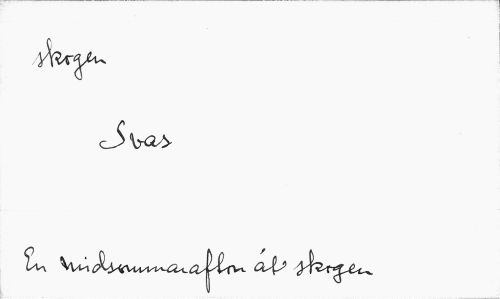 skogen
Svas
En midsommarafton åt skogen